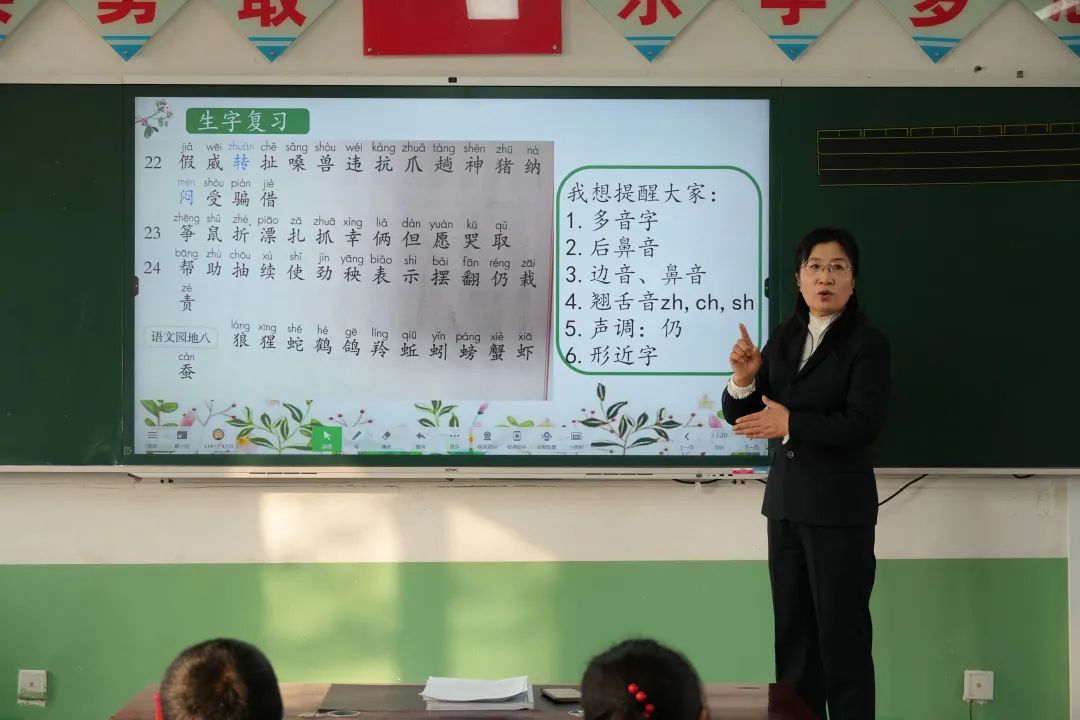 勇 取
乐 学 多
生字复习
jiǎ wēi zhuàn chě sǎng shòu wéi kàng zhuǎ tàng shén zhū nà
22 假 威 转 扯 嗓 兽 违 抗 爪 趟 神 猪 纳
mèn shòu piàn jiè
闷 受 骗 借
zhēng shǔ zhé piāo zā zhuā xìng liǎ dàn yuàn kū qǔ
23 筝 鼠 折 漂 扎 抓 幸 俩 但 愿 哭 取
bāng zhù chōu xù shǐ jìn yāng biǎo shì bǎi fān réng zāi
24 帮 助 抽 续 使 劲 秧 表 示 摆 翻 仍 栽
zé
责
láng xīng shé hè gē líng qiū yǐn páng xiè xiā
语文园地八 狼 猩 蛇 鹤 鸽 羚 蚯 蚓 螃 蟹 虾
cán
蚕
我想提醒大家：
1. 多音字
2. 后鼻音
3. 边音、鼻音
4. 翘舌音zh, ch, sh
5. 声调：仍
6. 形近字